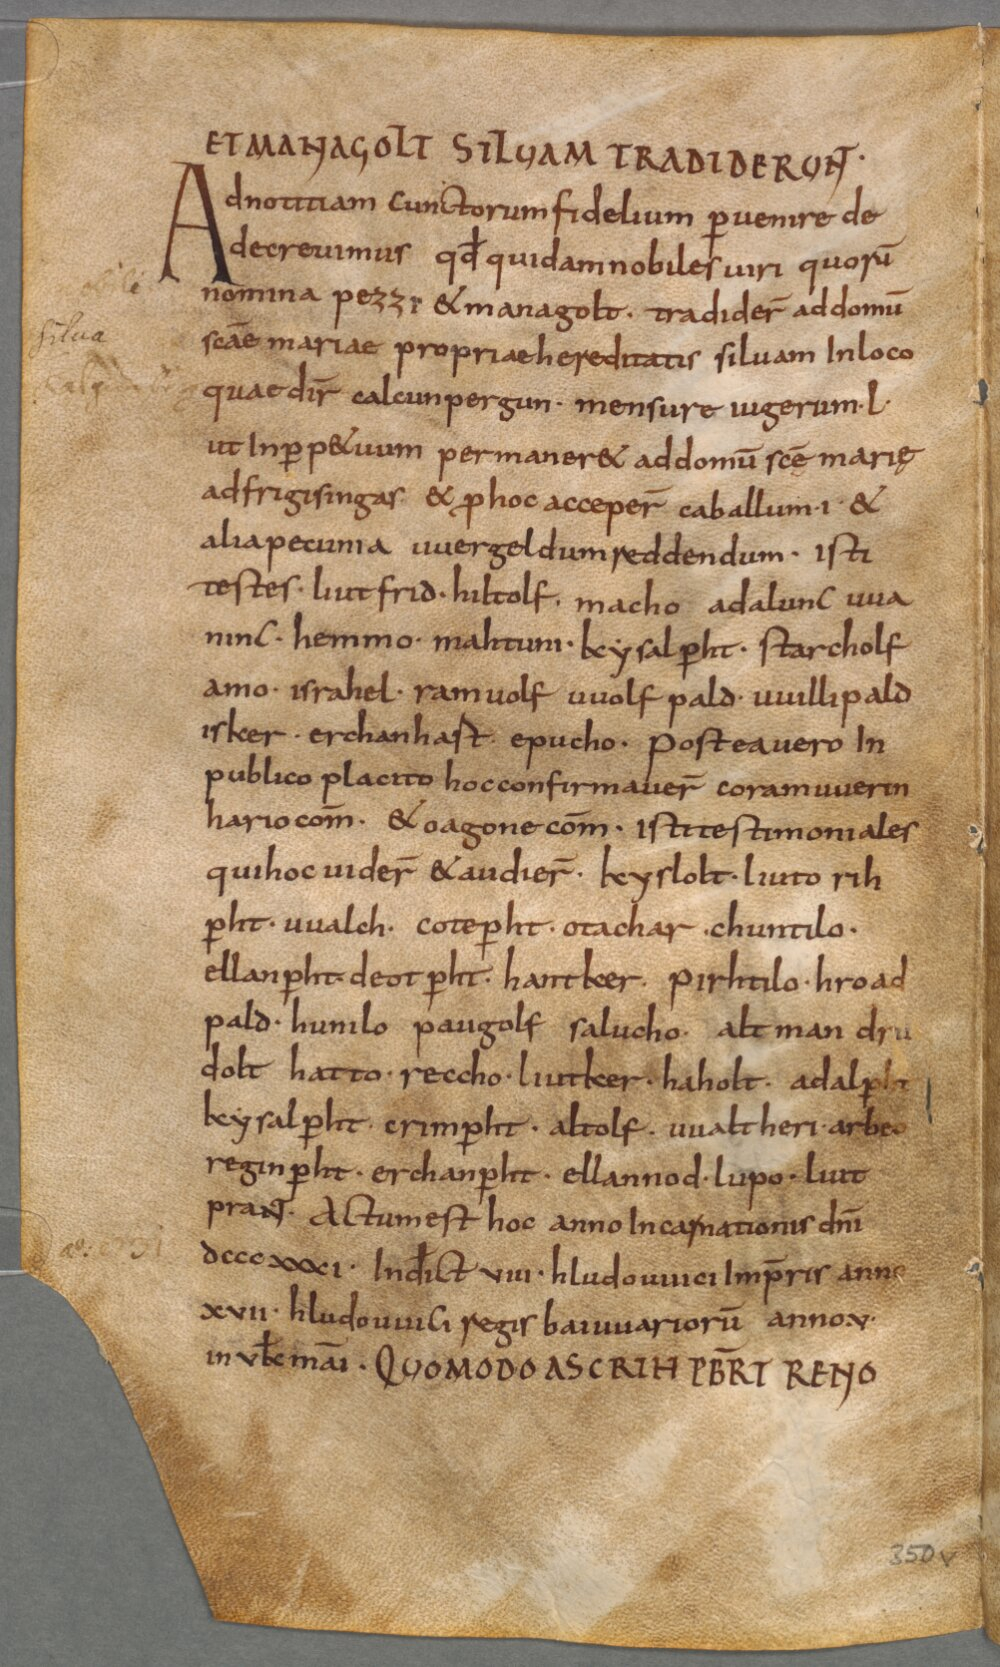 ET MANAGOLT SILUAM TRADIDERUNT.
Ad notitiam cunctorum fidelium p̱uenire de
decreuimus qđ quidam nobiles uiri quorū
nomina pezzi & managolt. tradider̄ ad domū
scāe mariae propriae hereditatis siluam In loco
quae dir̄ calcunpergun. mensure iugerum.l.
ut In p̱p&uum permaner& ad domū scē marię
ad frigisingas. & ꝓ hoc acceper̄ caballum.i. &
alia pecunia uuergeldum reddendum. isti
testes. liutfrid. hiltolf. macho adalunc uua
ninc. hemmo. mahtuni. keysalp̱ht. starcholf
amo. israhel. ramuolf uuolfpald. uuillipald
isker. erchanhast. epucho. Postea uero In
publico placito hoc confirmauer̄ coram uuerin
hario com̄. & oagone com̄. isti testimoniales
qui hoc uider̄ & audier̄. keyslolt. liuto rih
p̱ht. uualch. cotep̱ht. otachar. chuntilo.
ellanp̱ht. deotp̱ht. hantker. pirhtilo. hroad
pald. hunilo paugolf salucho. altman dru
dolt hatto. reccho. liutker. haholt. adalp̱ht
keysalp̱ht. crimp̱ht. altolf. uualtheri. arbeo
reginp̱ht. erchanp̱ht. ellannod. lupo. liut
prant. Actum est hoc anno Incarnationis dn̄i
dcccxxxi. Indict̄ viii. hludouuici Imp̄ris anno
xvii. hludouuici regis baiuuariorū anno.v.
in vƚ c mai. QUOMODO ASCRIH PB̄RT RENO
silua
350v